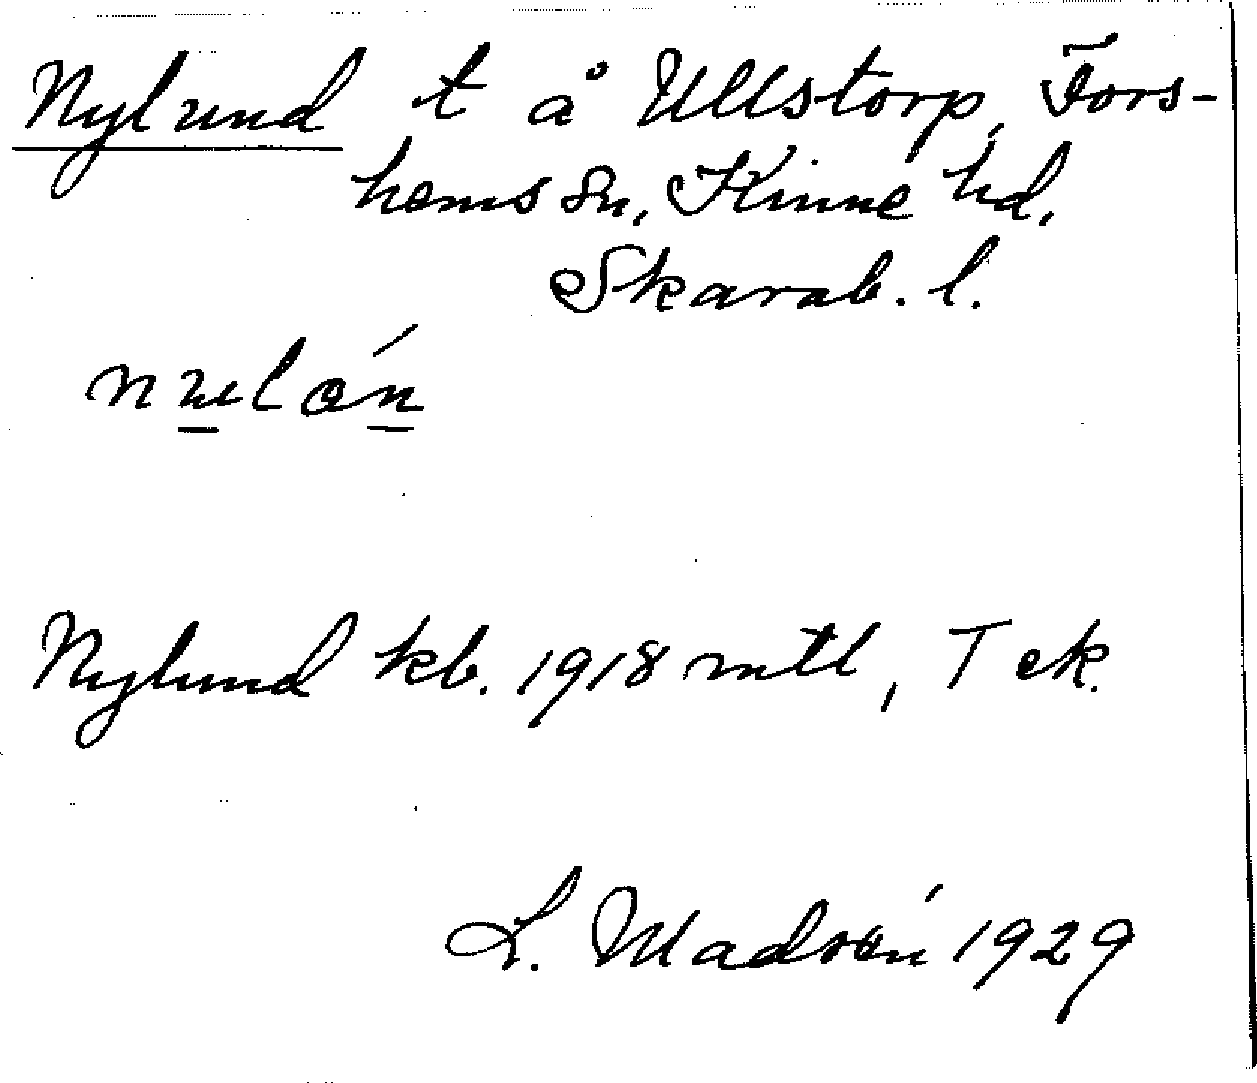 Nylund t å Ullstorp, Fors-
hems sn, Kinne hd,
Skarab. l.
Nylund kb. 1918 mtl, 1 ek.
1929